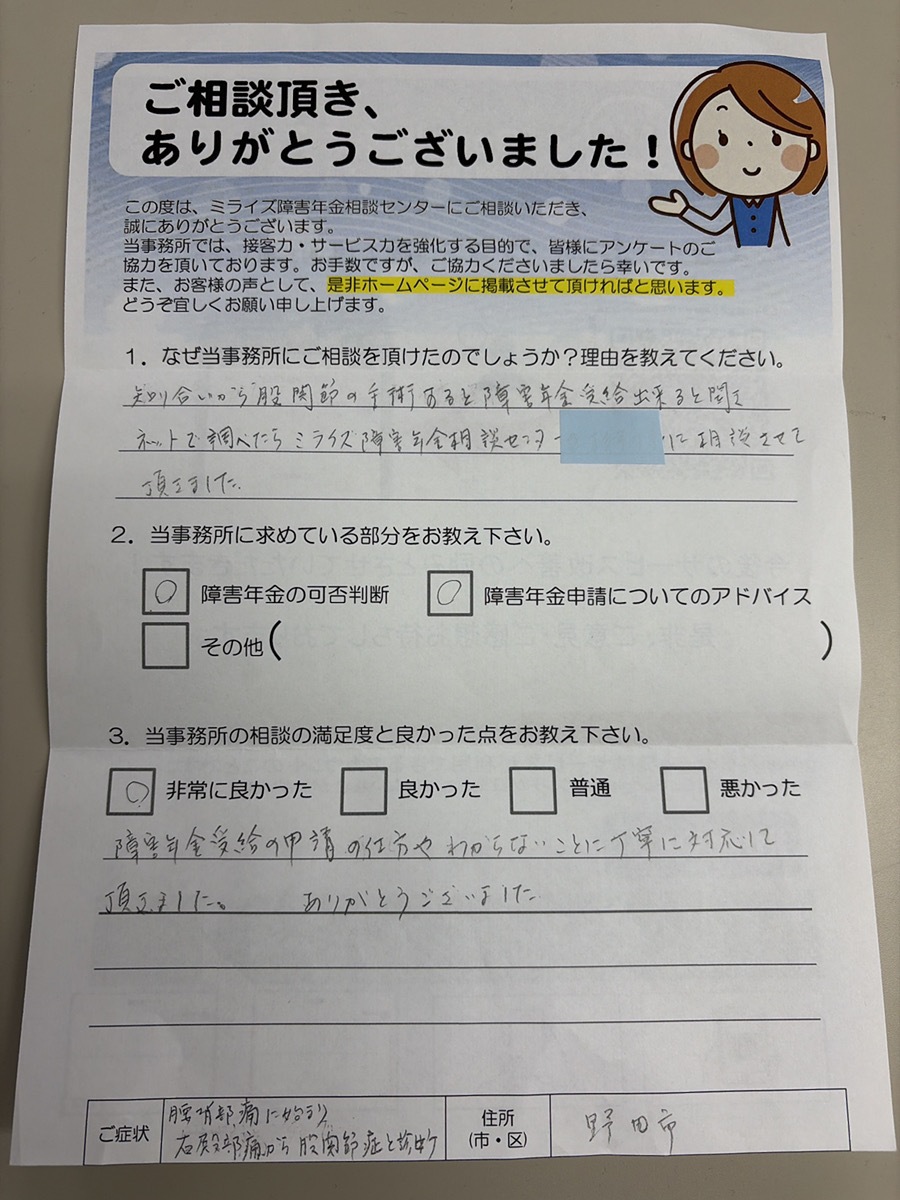 ご相談頂き、
ありがとうございました！
この度は、ミライズ障害年金相談センターにご相談いただき、
誠にありがとうございます。
当事務所では、接客力・サービス力を強化する目的で、皆様にアンケートのご
協力を頂いております。お手数ですが、ご協力くださいましたら幸いです。
また、お客様の声として、是非ホームページに掲載させて頂ければと思います。
どうぞ宜しくお願い申し上げます。
1．なぜ当事務所にご相談を頂けたのでしょうか？理由を教えてください。
知り合いから股関節の手術あると障害年金受給出来ると聞き
ネットで調べたらミライズ障害年金相談センター に相談させて
頂きました。
2．当事務所に求めている部分をお教え下さい。
○ 障害年金の可否判断 ○ 障害年金申請についてのアドバイス
その他（ ）
3．当事務所の相談の満足度と良かった点をお教え下さい。
○ 非常に良かった 良かった 普通 悪かった
障害年金受給の申請の仕方やわからないことに丁寧に対応して
頂きました。 ありがとうございました
ご症状 腰背部痛に始まり 住所 野田市
右殿部痛から股関節症と診断 (市・区)